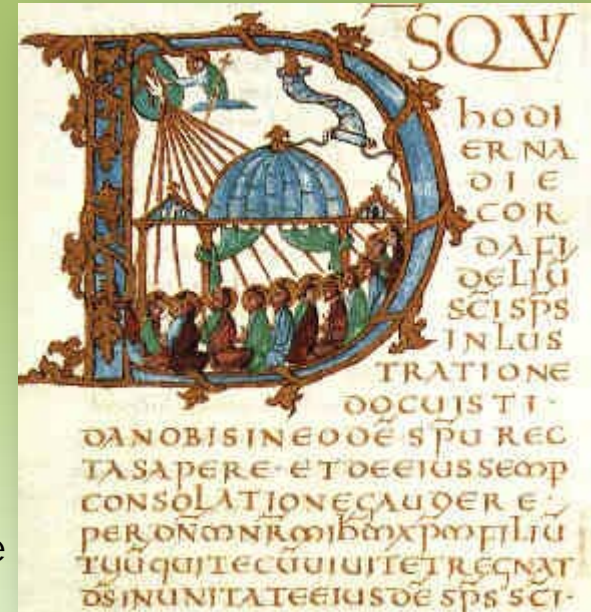 D SQVI
hODI
ERNA
DIE
COR
DAFI
DELIŪ
SC̄ISP̄S
INLUS
TRATIONE
DOCUISTI·
DANOBISINEODĒSPŪREC
TASAPERE·ETDEEIUSSEMP
CONSOLATIONEGAUDERE
PERDN̄MNR̄MIhM̄XPMFILIŪ
TUŪQUITECŪUIUITETREGNAT
DSINUNITATEEIUSDĒSP̄SSC̄I·
e